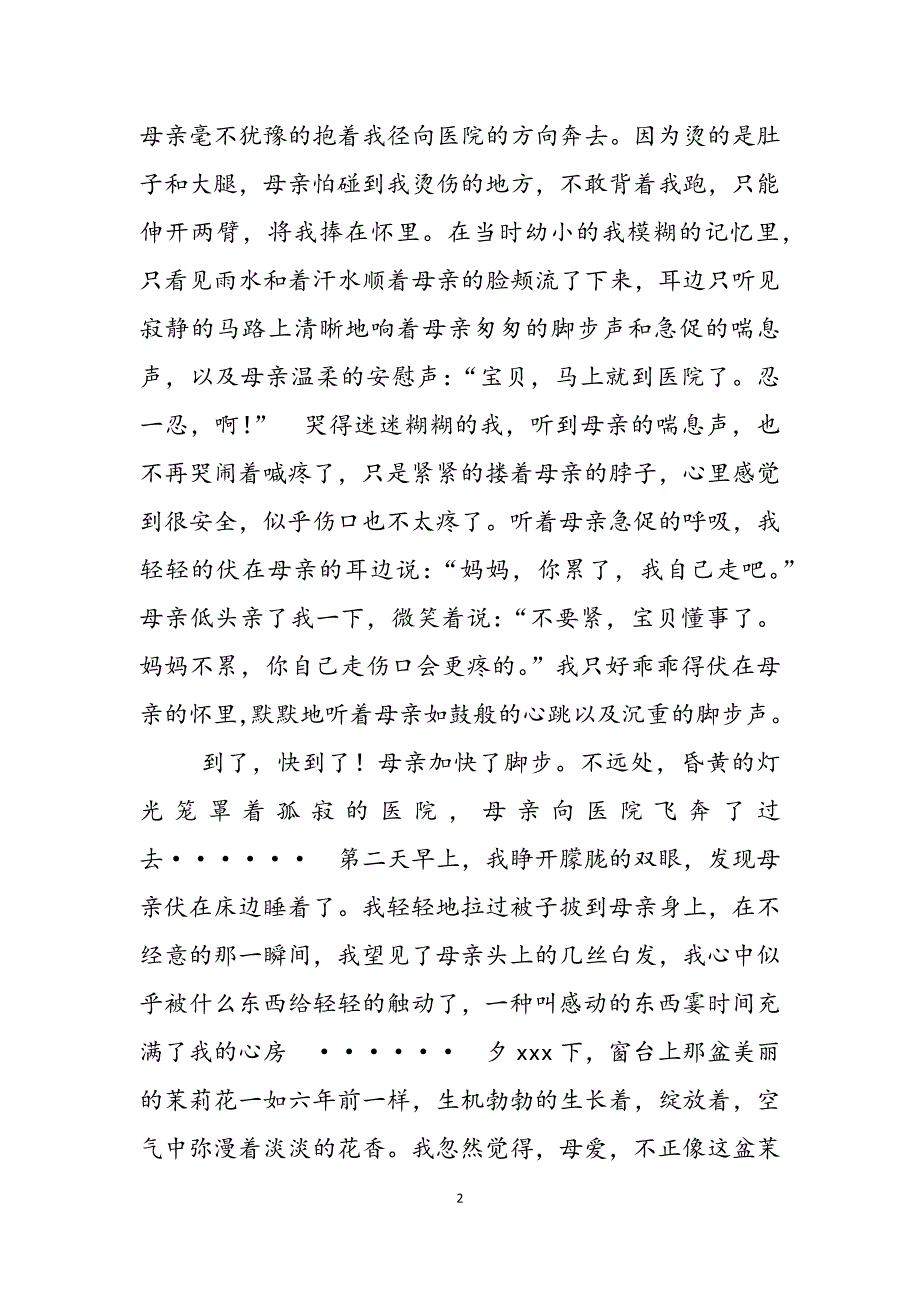 母亲毫不犹豫的抱着我径向医院的方向奔去。因为烫的是肚
子和大腿，母亲怕碰到我烫伤的地方，不敢背着我跑，只能
伸开两臂，将我捧在怀里。在当时幼小的我模糊的记忆里，
只看见雨水和着汗水顺着母亲的脸颊流了下来，耳边只听见
寂静的马路上清晰地响着母亲匆匆的脚步声和急促的喘息
声，以及母亲温柔的安慰声：“宝贝，马上就到医院了。忍
一忍，啊！”　哭得迷迷糊糊的我，听到母亲的喘息声，也
不再哭闹着喊疼了，只是紧紧的搂着母亲的脖子，心里感觉
到很安全，似乎伤口也不太疼了。听着母亲急促的呼吸，我
轻轻的伏在母亲的耳边说：“妈妈，你累了，我自己走吧。”
母亲低头亲了我一下，微笑着说：“不要紧，宝贝懂事了。
妈妈不累，你自己走伤口会更疼的。”我只好乖乖得伏在母
亲的怀里,默默地听着母亲如鼓般的心跳以及沉重的脚步声。
到了，快到了！母亲加快了脚步。不远处，昏黄的灯
光笼罩着孤寂的医院，母亲向医院飞奔了过
去······　第二天早上，我睁开朦胧的双眼，发现母
亲伏在床边睡着了。我轻轻地拉过被子披到母亲身上，在不
经意的那一瞬间，我望见了母亲头上的几丝白发，我心中似
乎被什么东西给轻轻的触动了，一种叫感动的东西霎时间充
满了我的心房　······　夕 xxx 下，窗台上那盆美丽
的茉莉花一如六年前一样，生机勃勃的生长着，绽放着，空
气中弥漫着淡淡的花香。我忽然觉得，母爱，不正像这盆茉
2